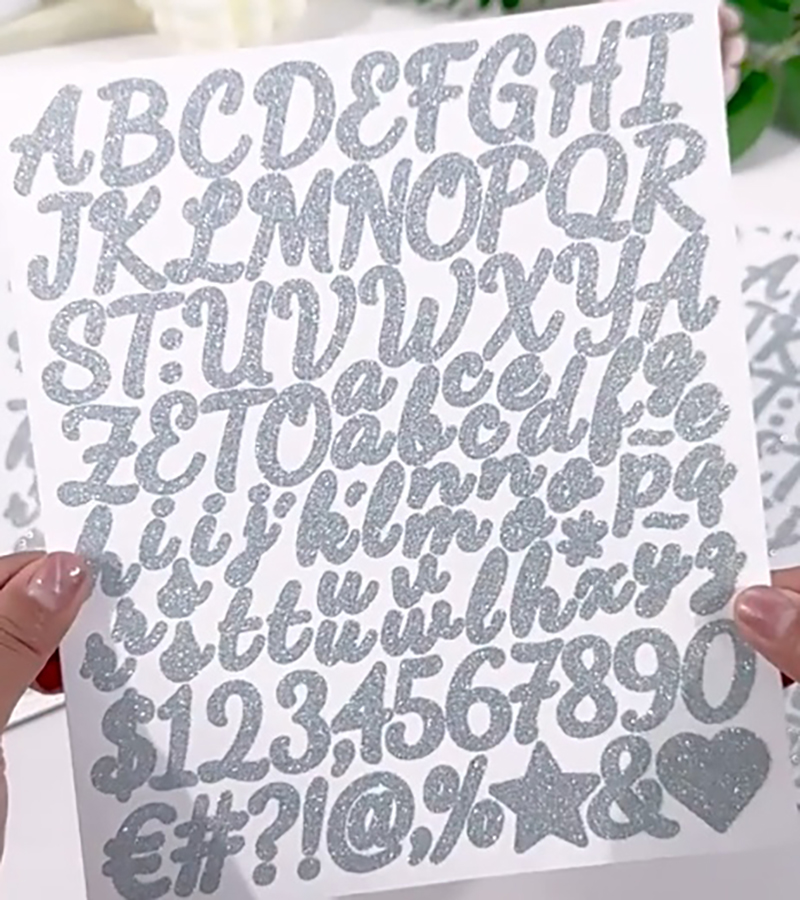 ABCDEFGHI
JKLMNOPQR
ST:UVWXYA
ZETO
a c e
a b c d f g e
h i i j k l m n n o p q
t t u u u w l h x y z
$123,4567890
€#?!@,%★&♥